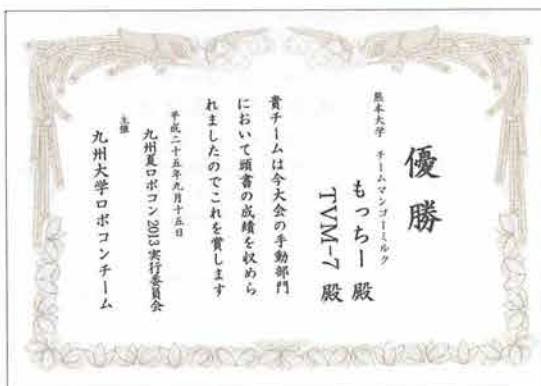 優勝
熊本大学 チームマンゴーミルク
もっちー殿
TVM-7殿
貴チームは今大会の手動部門
において頭書の成績を収めら
れましたのでこれを賞します
平成二十五年九月十五日
九州夏ロボコン2013実行委員会
主催
九州大学ロボコンチーム